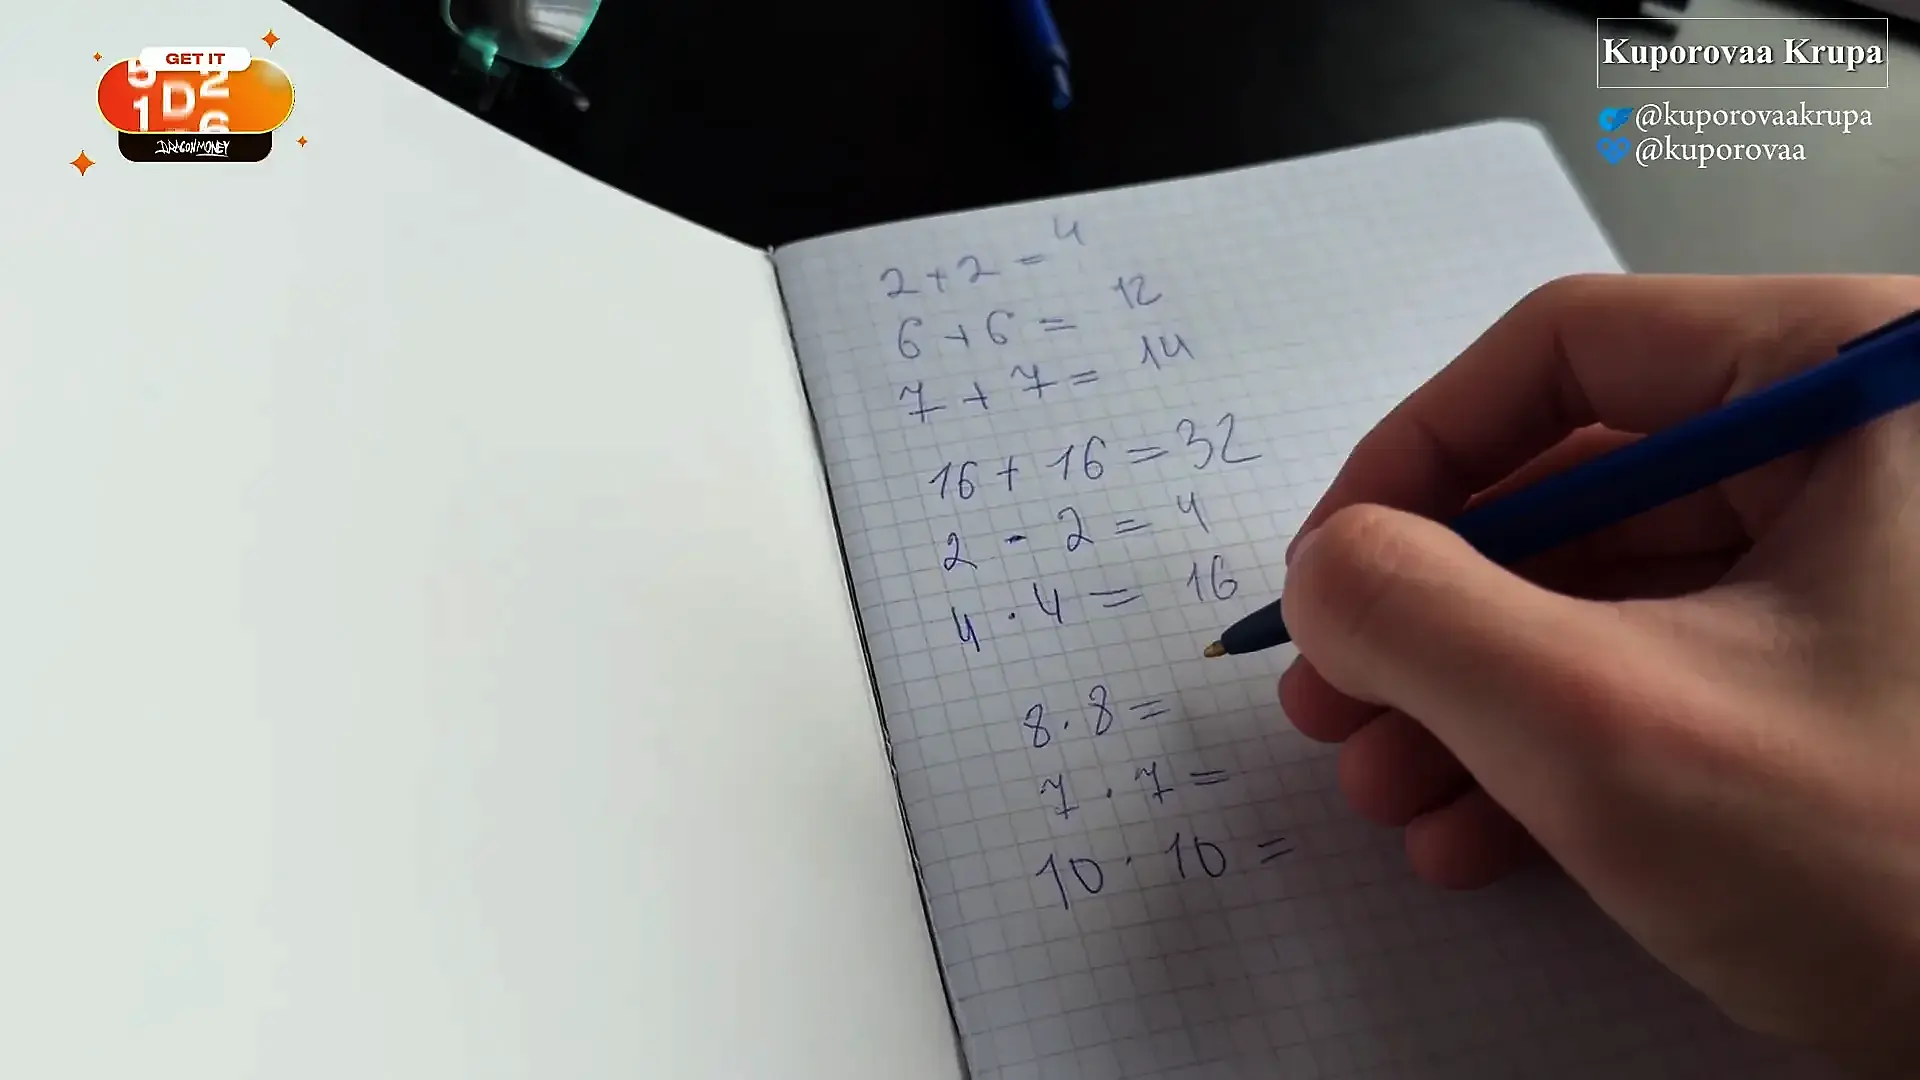 GET IT
5 2
1 D 6
DRAGON MONEY
Kuporovaa Krupa
@kuporovaakrupa
@kuporovaa
2 + 2 = 4
6 + 6 = 12
7 + 7 = 14
16 + 16 = 32
2 - 2 = 4
4 · 4 = 16
8 · 8 =
7 · 7 =
10 · 10 =